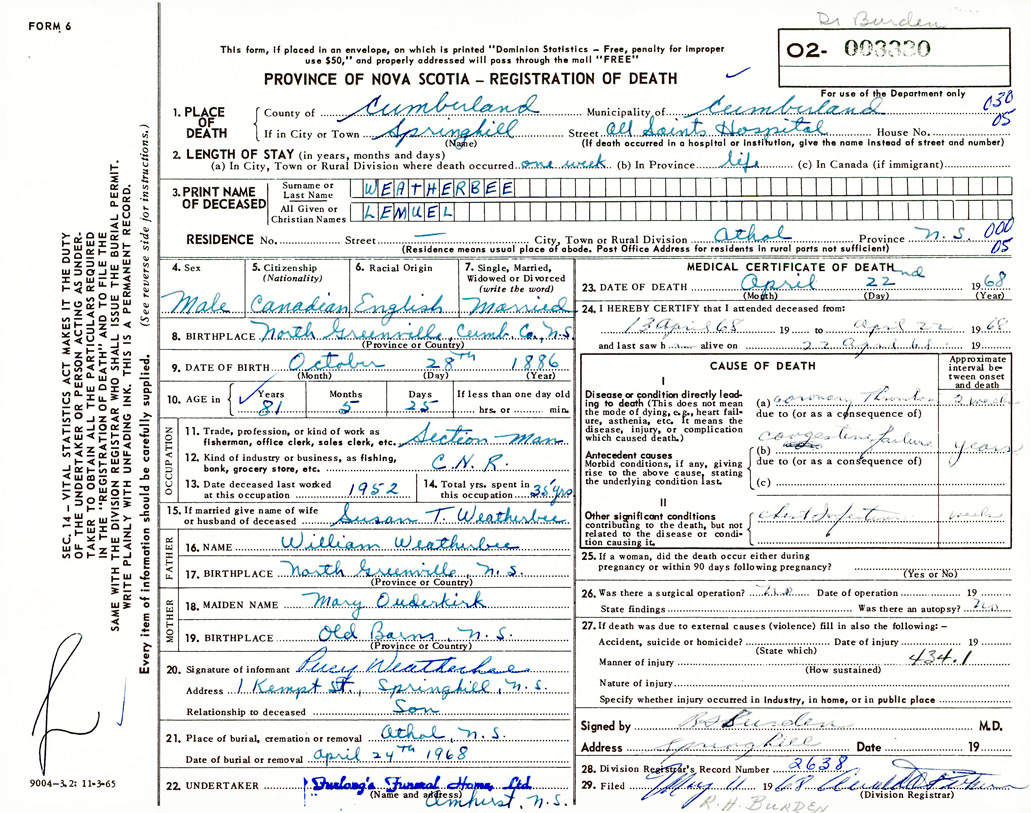 FORM 6
Dr Burden
This form, if placed in an envelope, on which is printed "Dominion Statistics – Free, penalty for improper
use $50," and properly addressed will pass through the mail "FREE"
O2- 003330
For use of the Department only
PROVINCE OF NOVA SCOTIA – REGISTRATION OF DEATH
030
05
1. PLACE OF DEATH
County of Cumberland Municipality of Cumberland
If in City or Town Springhill Street All Saints Hospital House No.
(Name) (If death occurred in a hospital or institution, give the name instead of street and number)
2. LENGTH OF STAY (in years, months and days)
(a) In City, Town or Rural Division where death occurred one week (b) In Province life (c) In Canada (if immigrant)
3. PRINT NAME OF DECEASED
Surname or Last Name WEATHERBEE
All Given or Christian Names LEMUEL
RESIDENCE No. Street — City, Town or Rural Division Athol Province N.S.
000
05
(Residence means usual place of abode. Post Office Address for residents in rural parts not sufficient)
4. Sex Male
5. Citizenship (Nationality) Canadian
6. Racial Origin English
7. Single, Married, Widowed or Divorced (write the word) Married
8. BIRTHPLACE North Greenville, Cumb. Co., N.S.
(Province or Country)
9. DATE OF BIRTH October 28th 1886
(Month) (Day) (Year)
10. AGE in Years 81 Months 5 Days 25 If less than one day old hrs. or min.
OCCUPATION
11. Trade, profession or kind of work as
fisherman, office clerk, sales clerk, etc. Section-Man
12. Kind of industry or business, as fishing,
bank, grocery store, etc. C.N.R.
13. Date deceased last worked at this occupation 1952
14. Total yrs. spent in this occupation 35 yrs
15. If married give name of wife
or husband of deceased Susan T. Weatherbie
FATHER
16. NAME William Weatherbie
17. BIRTHPLACE North Greenville, N.S.
(Province or Country)
MOTHER
18. MAIDEN NAME Mary Ouderkirk
19. BIRTHPLACE Old Barns, N.S.
(Province or Country)
20. Signature of informant Percy Weatherbee
Address 1 Kempt St., Springhill, N.S.
Relationship to deceased Son
21. Place of burial, cremation or removal Athol, N.S.
Date of burial or removal April 24th 1968
22. UNDERTAKER Furlong's Funeral Home, Ltd.
(Name and address) Amherst, N.S.
MEDICAL CERTIFICATE OF DEATH
23. DATE OF DEATH April 22nd 1968
(Month) (Day) (Year)
24. I HEREBY CERTIFY that I attended deceased from:
13 April 68 19 to April 22 1968
and last saw h alive on 22 April 68 19
CAUSE OF DEATH
Approximate interval between onset and death
I
Disease or condition directly leading
to death (This does not mean
the mode of dying, e.g., heart failure,
asthenia, etc. It means the
disease, injury, or complication
which caused death.)
(a) coronary 2 weeks
due to (or as a consequence of)
congestive failure years
Antecedent causes
Morbid conditions, if any, giving
rise to the above cause, stating
the underlying condition last.
(b)
due to (or as a consequence of)
(c)
II
Other significant conditions
contributing to the death, but not
related to the disease or condition
causing it.
Chest Infection weeks
25. If a woman, did the death occur either during
pregnancy or within 90 days following pregnancy?
(Yes or No)
26. Was there a surgical operation? No Date of operation 19
State findings Was there an autopsy? No
27. If death was due to external causes (violence) fill in also the following: –
Accident, suicide or homicide? Date of injury 19
(State which)
Manner of injury 434.1
(How sustained)
Nature of injury
Specify whether injury occurred in industry, in home, or in public place
Signed by Burden M.D.
Address Springhill Date 19
28. Division Registrar's Record Number 2638
29. Filed May 11 1968
(Division Registrar)
R.H. BURDEN
SEC. 14 – VITAL STATISTICS ACT MAKES IT THE DUTY
OF THE UNDERTAKER OR PERSON ACTING AS UNDERTAKER
TO OBTAIN ALL THE PARTICULARS REQUIRED
IN THE "REGISTRATION OF DEATH" AND TO FILE THE
SAME WITH THE DIVISION REGISTRAR WHO SHALL ISSUE THE BURIAL PERMIT.
WRITE PLAINLY WITH UNFADING INK. THIS IS A PERMANENT RECORD.
Every item of information should be carefully supplied. (See reverse side for instructions.)
9004–3.2: 11-3-65